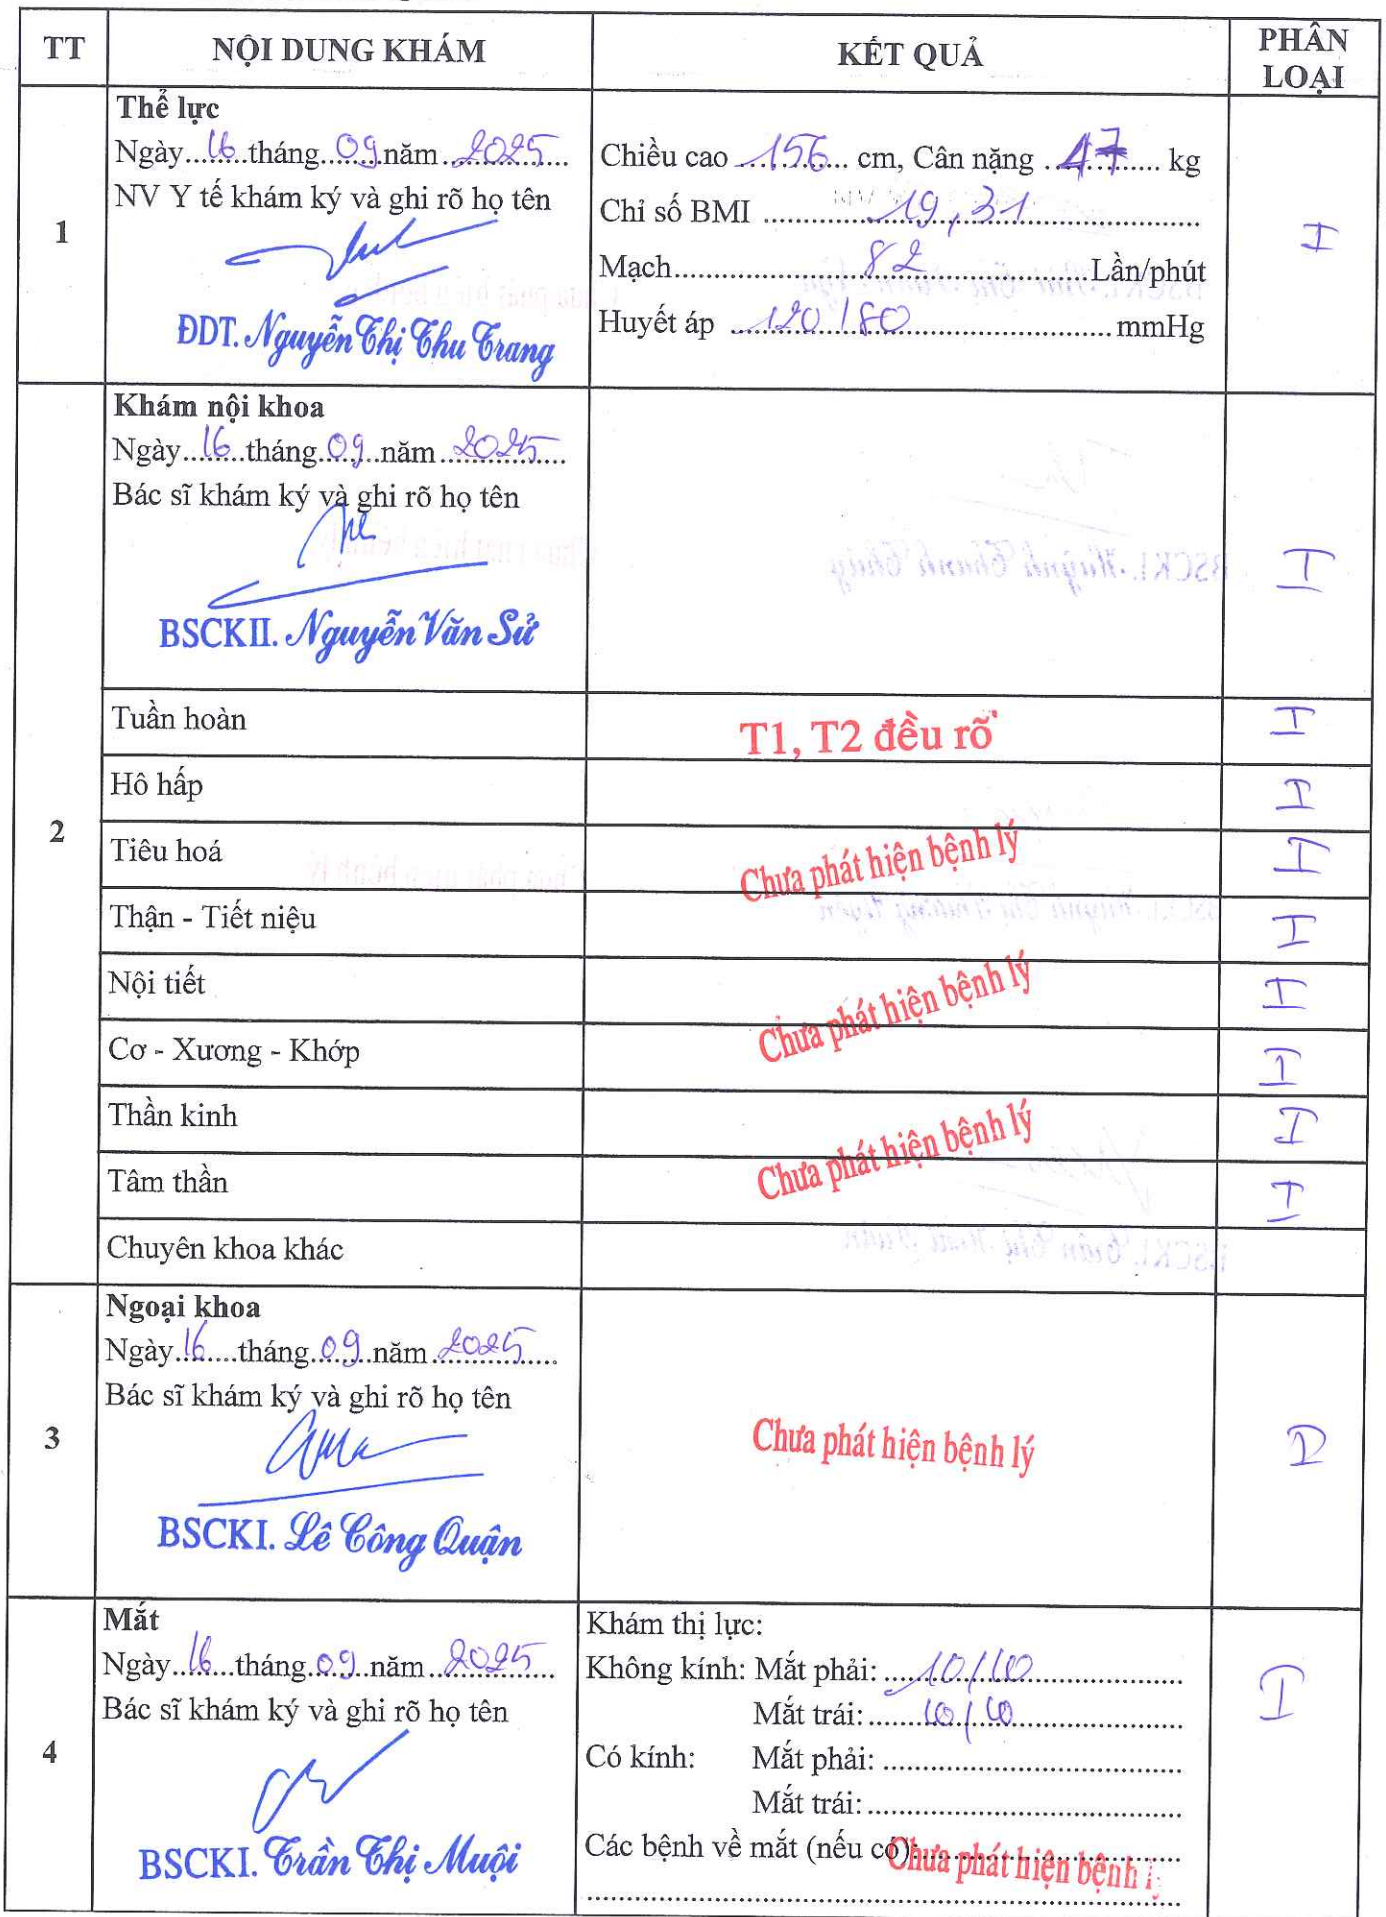 TT NỘI DUNG KHÁM KẾT QUẢ PHÂN LOẠI
1
Thể lực
Ngày 16 tháng 09 năm 2025
NV Y tế khám ký và ghi rõ họ tên
ĐDT. Nguyễn Thị Thu Trang
Chiều cao 156 cm, Cân nặng 47 kg
Chỉ số BMI 19,31
Mạch 82 Lần/phút
Huyết áp 120/80 mmHg
I
2
Khám nội khoa
Ngày 16 tháng 09 năm 2025
Bác sĩ khám ký và ghi rõ họ tên
BSCKII. Nguyễn Văn Sử
I
Tuần hoàn T1, T2 đều rõ I
Hô hấp I
Tiêu hoá Chưa phát hiện bệnh lý I
Thận - Tiết niệu I
Nội tiết Chưa phát hiện bệnh lý I
Cơ - Xương - Khớp I
Thần kinh Chưa phát hiện bệnh lý I
Tâm thần I
Chuyên khoa khác
3
Ngoại khoa
Ngày 16 tháng 09 năm 2025
Bác sĩ khám ký và ghi rõ họ tên
BSCKI. Lê Công Quận
Chưa phát hiện bệnh lý
I
4
Mắt
Ngày 16 tháng 09 năm 2025
Bác sĩ khám ký và ghi rõ họ tên
BSCKI. Trần Thị Muội
Khám thị lực:
Không kính: Mắt phải: 10/10
Mắt trái: 10/10
Có kính: Mắt phải:
Mắt trái:
Các bệnh về mắt (nếu có): Chưa phát hiện bệnh lý
I